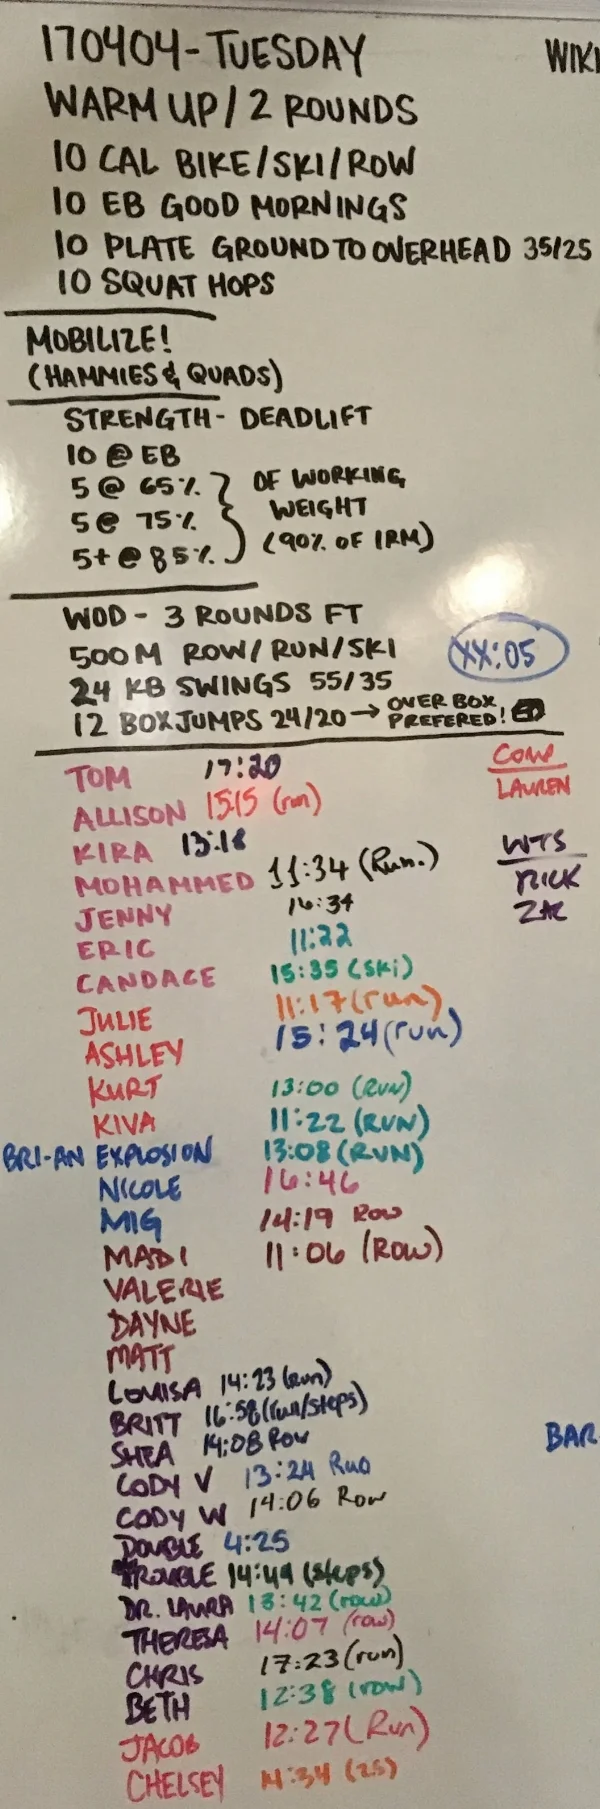 170404-TUESDAY
WIKI
WARM UP/2 ROUNDS
10 CAL BIKE/SKI/ROW
10 EB GOOD MORNINGS
10 PLATE GROUND TO OVERHEAD 35/25
10 SQUAT HOPS
MOBILIZE!
(HAMMIES & QUADS)
STRENGTH- DEADLIFT
10 @ EB
5 @ 65%
5@ 75%
5+ @ 85%
OF WORKING
WEIGHT
(90% OF 1RM)
WOD - 3 ROUNDS FT
500M ROW/RUN/SKI
XX:05
24 KB SWINGS 55/35
12 BOX JUMPS 24/20→ OVER BOX
PREFERED!
COW
LAUREN
WTS
RICK
ZAC
TOM 17:20
ALLISON 15:15 (run)
KIRA 13:18
MOHAMMED 11:34 (Run.)
JENNY 16:34
ERIC 11:22
CANDACE 15:35 (Ski)
JULIE 11:17 (run)
ASHLEY 15:24 (run)
KURT 13:00 (RUN)
KIVA 11:22 (RUN)
BRI-AN EXPLOSION 13:08 (RUN)
NICOLE 16:46
MIG 14:19 Row
MADI 11:06 (ROW)
VALERIE
DAYNE
MATT
LOUISA 14:23 (run)
BRITT 16:58 (run/steps)
SHEA 14:08 Row
CODY V 13:24
CODY W 14:06 Row
DOUBLE 4:25
TROUBLE 14:49 (steps)
DR. LAURA 13:42 (row)
THERESA 14:07 (row)
CHRIS 17:23 (run)
BETH 12:38 (row)
JACOB 12:27 (Run)
CHELSEY 14:34 (25)
BAR